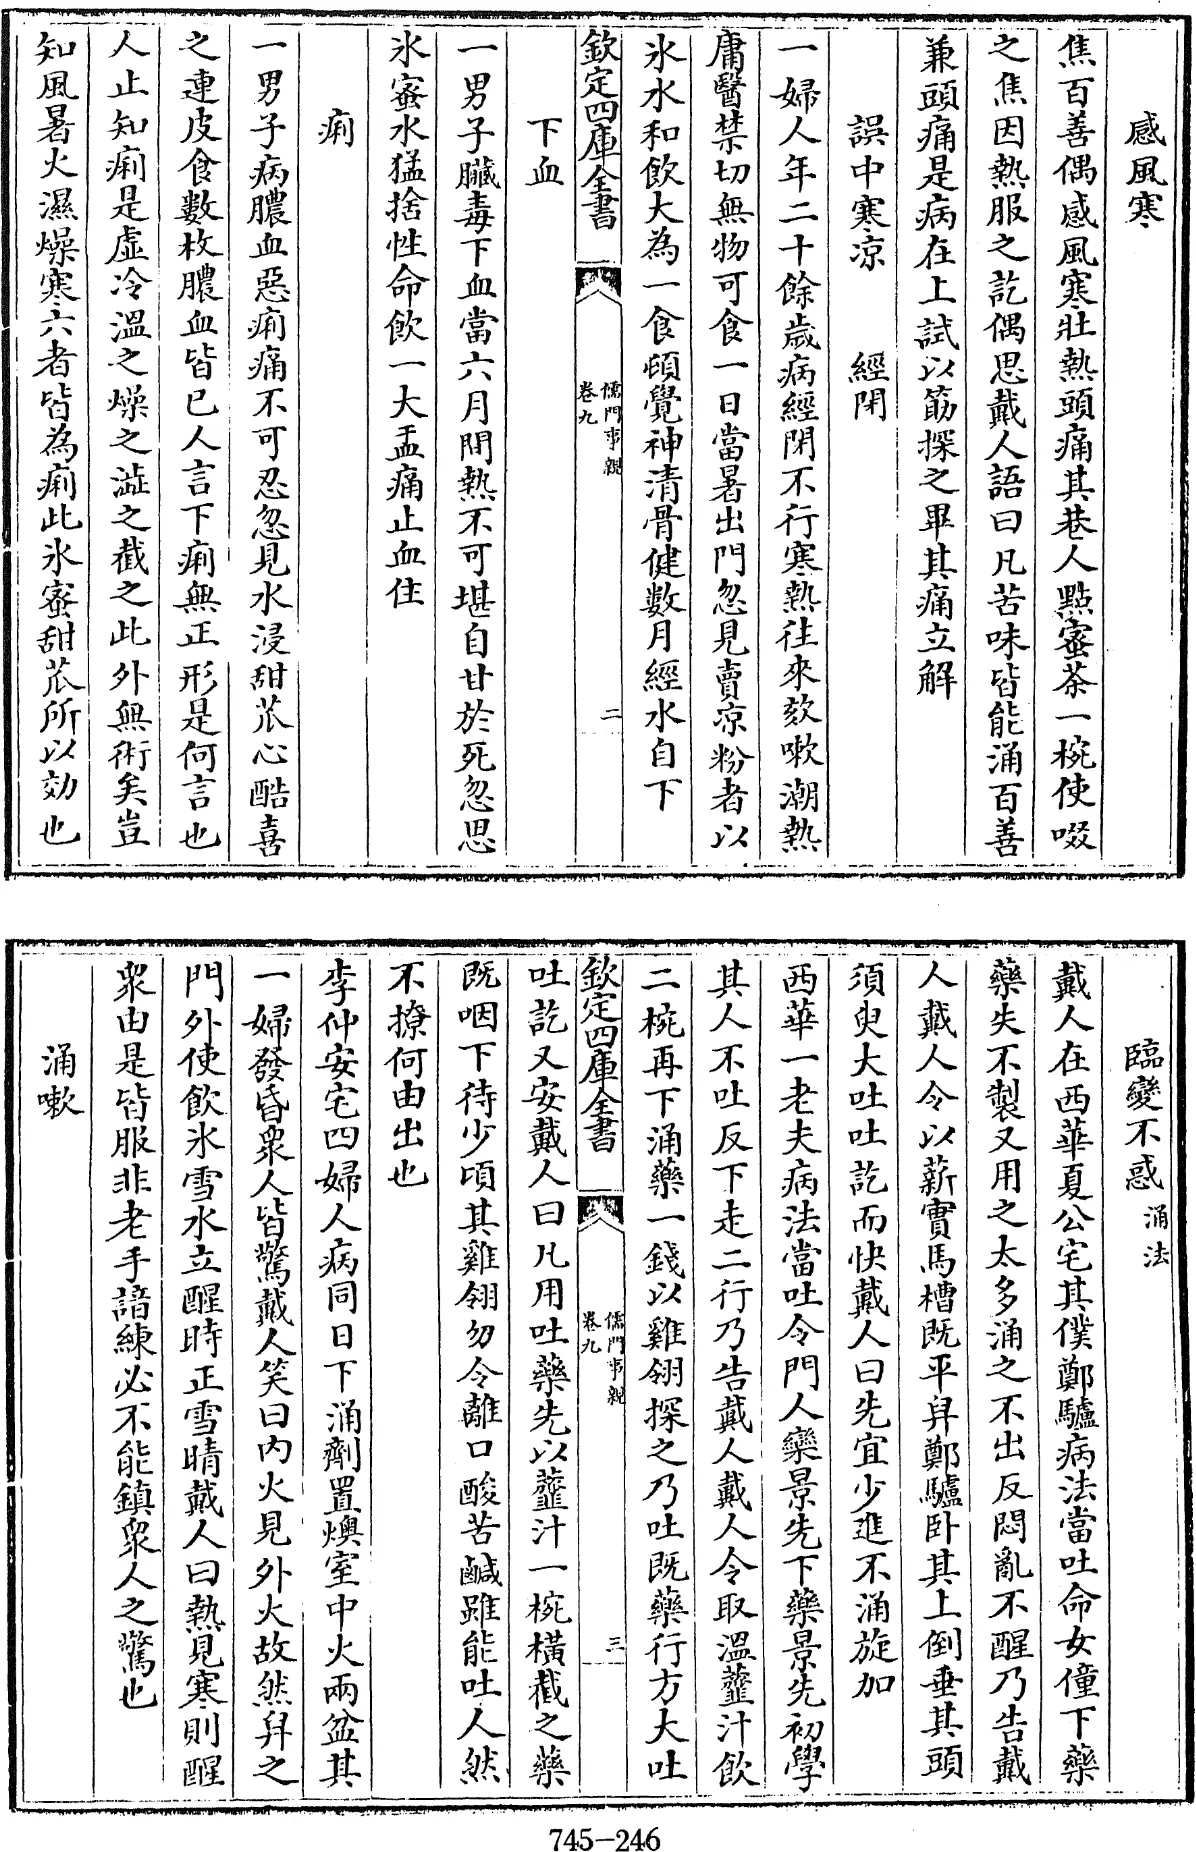 感風寒
焦百善偶感風寒壯熱頭痛其巷人㸃蜜茶一椀使啜
之焦因熱服之訖偶思戴人語曰凡苦味皆能涌百善
兼頭痛是病在上試以筯探之畢其痛立解
誤中寒凉　經閉
一婦人年二十餘歲病經閉不行寒熱往來欬嗽潮熱
庸醫禁切無物可食一日當暑出門忽見賣凉粉者以
氷水和飲大為一食頓覺神清骨健數月經水自下
欽定四庫全書
儒門事親
卷九
二
下血
一男子臟毒下血當六月間熱不可堪自甘於死忽思
氷蜜水猛捨性命飲一大盂痛止血住
痢
一男子病膿血惡痢痛不可忍忽見水浸甜苽心酷喜
之連皮食數枚膿血皆已人言下痢無正形是何言也
人止知痢是虛冷溫之燥之澁之截之此外無術矣豈
知風暑火濕燥寒六者皆為痢此氷蜜甜苽所以効也
臨變不惑 涌法
戴人在西華夏公宅其僕鄭驢病法當吐命女僮下藥
藥失不製又用之太多涌之不出反悶亂不醒乃告戴
人戴人令以薪實馬槽既平舁鄭驢卧其上倒垂其頭
須臾大吐吐訖而快戴人曰先宜少進不涌旋加
西華一老夫病法當吐令門人欒景先下藥景先初學
其人不吐反下走二行乃告戴人戴人令取溫虀汁飲
二椀再下涌藥一錢以雞翎探之乃吐既藥行方大吐
欽定四庫全書
儒門事親
卷九
三
吐訖又安戴人曰凡用吐藥先以虀汁一椀橫截之藥
既咽下待少頃其雞翎勿令離口酸苦鹹雖能吐人然
不撩何由出也
李仲安宅四婦人病同日下涌劑置燠室中火兩盆其
一婦發昏衆人皆驚戴人笑曰内火見外火故然舁之
門外使飲氷雪水立醒時正雪晴戴人曰熱見寒則醒
衆由是皆服非老手諳練必不能鎮衆人之驚也
涌嗽
745-246